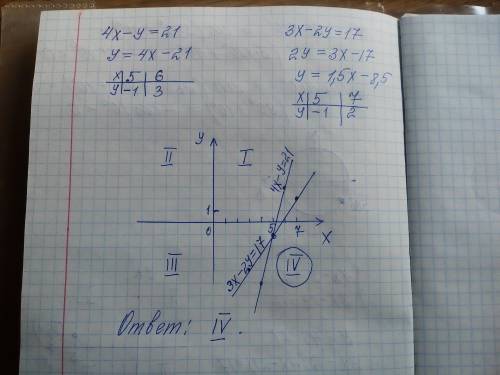 4x-y=21
y=4x-21
x 5 6
y -1 3
3x-2y=17
2y=3x-17
y=1,5x-8,5
x 5 7
y -1 2
y
II I
4x-y=21
1
0 5 7 x
III IV
3x-2y=17
Ответ: IV.